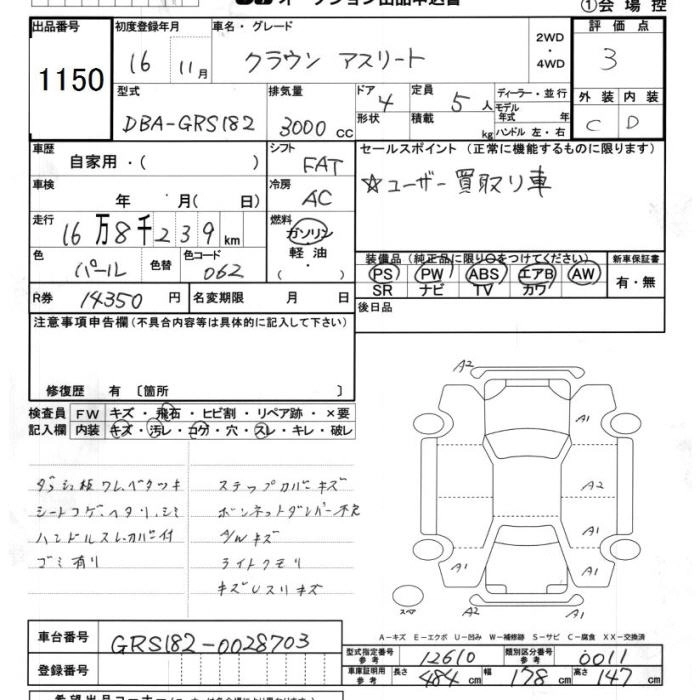 オークション出品申込書
①会場控
出品番号
1150
初度登録年月
16 11月
車名・グレード
クラウン アスリート
2WD
・
4WD
評価点
3
型式
DBA-GRS182
排気量
3000 cc
ドア
4
形状
定員
5人
積載
kg
ディーラー・並行
モデル年式 年
ハンドル 左・右
外装 内装
C D
車歴
自家用・( )
シフト
FAT
セールスポイント(正常に機能するものに限ります)
☆ユーザー買取り車
車検
年 月( 日)
冷房
AC
走行
16万8千239km
燃料
ガソリン
軽油
・
色
パール
色替
色コード
062
装備品(純正品に限り○をつけてください)
PS PW ABS エアB AW
SR ナビ TV カワ
新車保証書
有・無
R券 14350円
名変期限 月 日
後日品
注意事項申告欄(不具合内容等は具体的に記入して下さい)
修復歴 有〔箇所 〕
検査員記入欄
FW キズ・飛石・ヒビ割・リペア跡・×要
内装 キズ・汚レ・コゲ・穴・スレ・キレ・破レ
ダッシュ板ワレ、ベタツキ
シートコゲ、ヘタリ、シミ
ハンドルスレ、カバー付
ゴミ有リ
ステップカバーキズ
ボンネットダンパー不良
A/Wキズ
ライトクモリ
キズUスリキズ
A2
A1
A2
A1
A1
A2
スペア
A-キズ E-エクボ U-凹み W-補修跡 S-サビ C-腐食 XX-交換済
車台番号
GRS182-0028703
登録番号
型式指定番号
参考
12610
類別区分番号
参考
0011
車庫証明用
参考
長さ 484cm
幅 178cm
高さ 147cm
希望出品コーナー